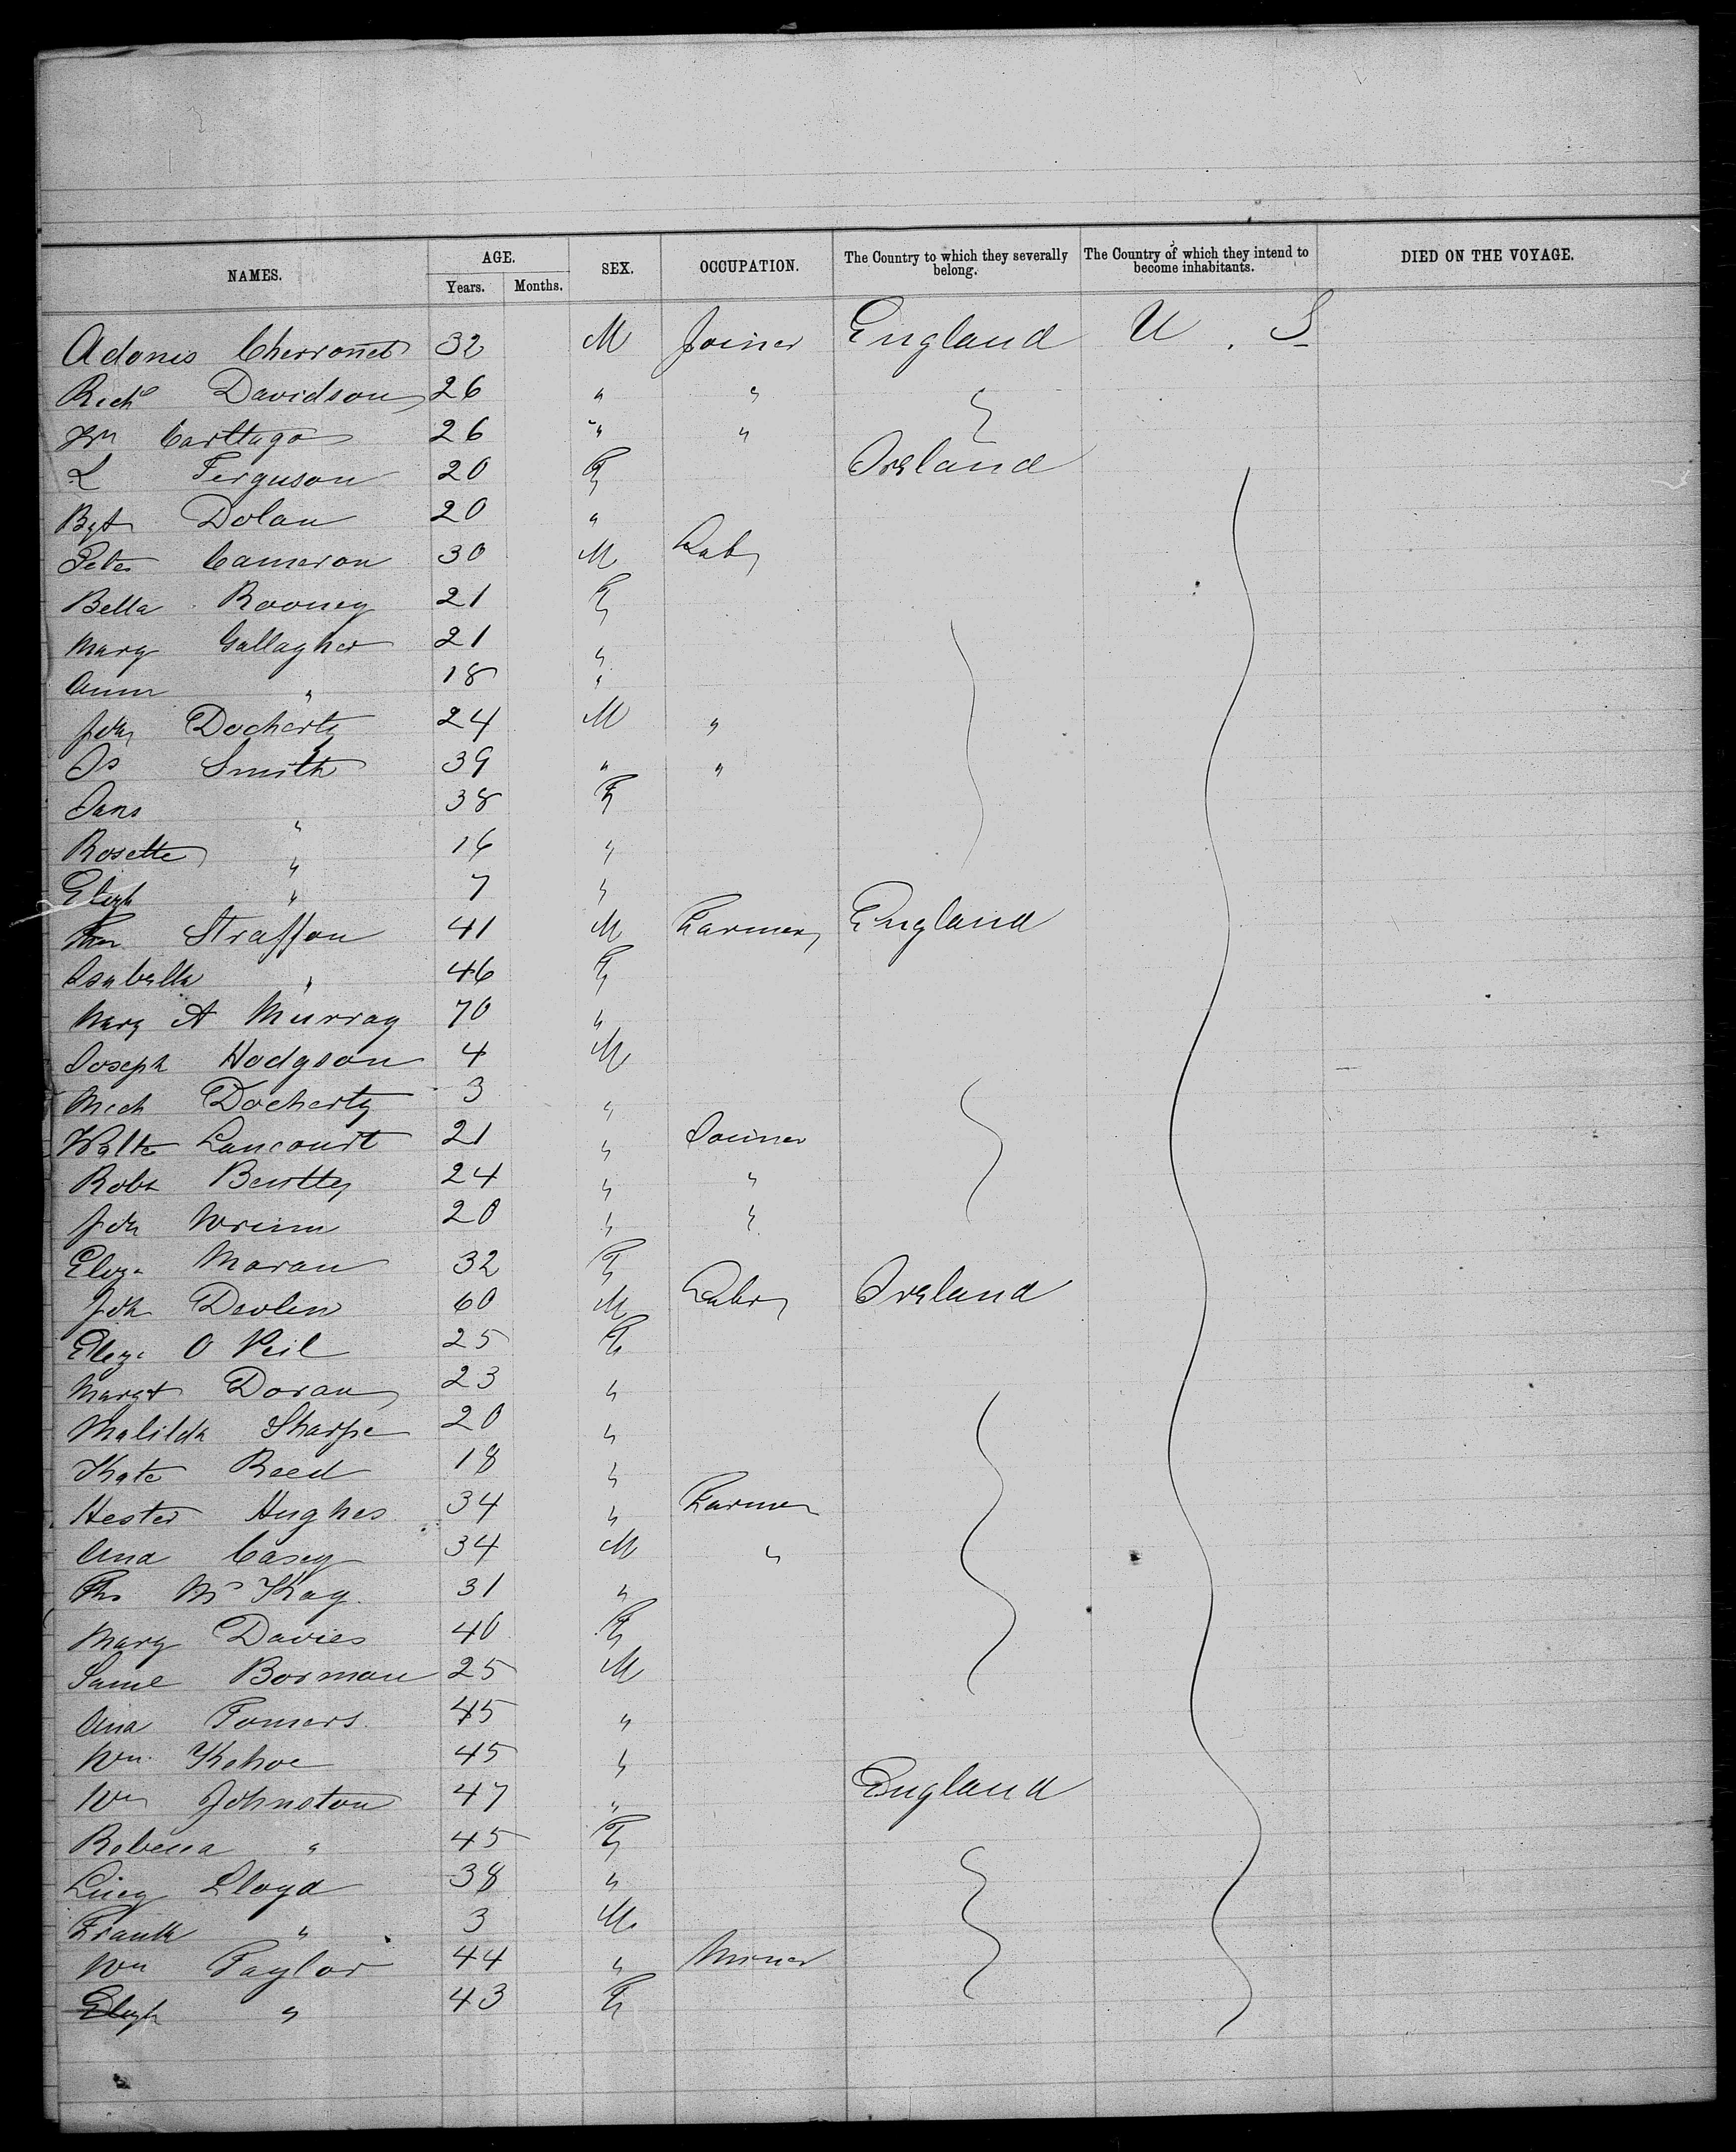 NAMES. AGE. Years. Months. SEX. OCCUPATION. The Country to which they severally belong. The Country of which they intend to become inhabitants. DIED ON THE VOYAGE.
Adonis 32 M Joiner England U. S
Richd Davidson 26 " "
Wm 26 " "
L Ferguson 20 F Ireland
Bgt Dolan 20 "
Peter Cameron 30 M Labr
Bella Rooney 21 F
Mary Gallagher 21 "
Ann " 18 "
Joh Docherty 24 M "
Js Smith 39 " "
Jane " 38 F
Rosette " 16 "
Elizh " 7 "
Straffon 41 M Farmer England
Isabella " 46 F
Mary A Murray 70 "
Joseph Hodgson 4 M
Mich Docherty 3 "
Walter Lancourt 21 " Joiner
Robt 24 " "
Joh 20 " "
Eliza Moran 32 F
Joh Devlin 60 M Labr Ireland
Eliza O Neil 25 F
Margt Doran 23 "
Matilda Sharpe 20 "
Kate Reed 18 "
Hester Hughes 34 " Farmer
Casey 34 M "
Ths Mc Kay 31 "
Mary Davies 40 F
Saml Borman 25 M
45 "
Wm Kehoe 45 "
Wm Johnston 47 " England
Robena " 45 F
Lucy Lloyd 38 "
Frank " 3 M
Wm Taylor 44 " Miner
Elizh " 43 F